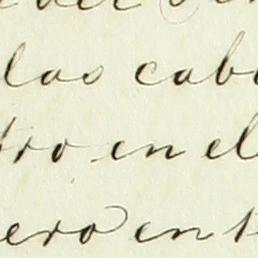 las cab
tro en el
ero en t